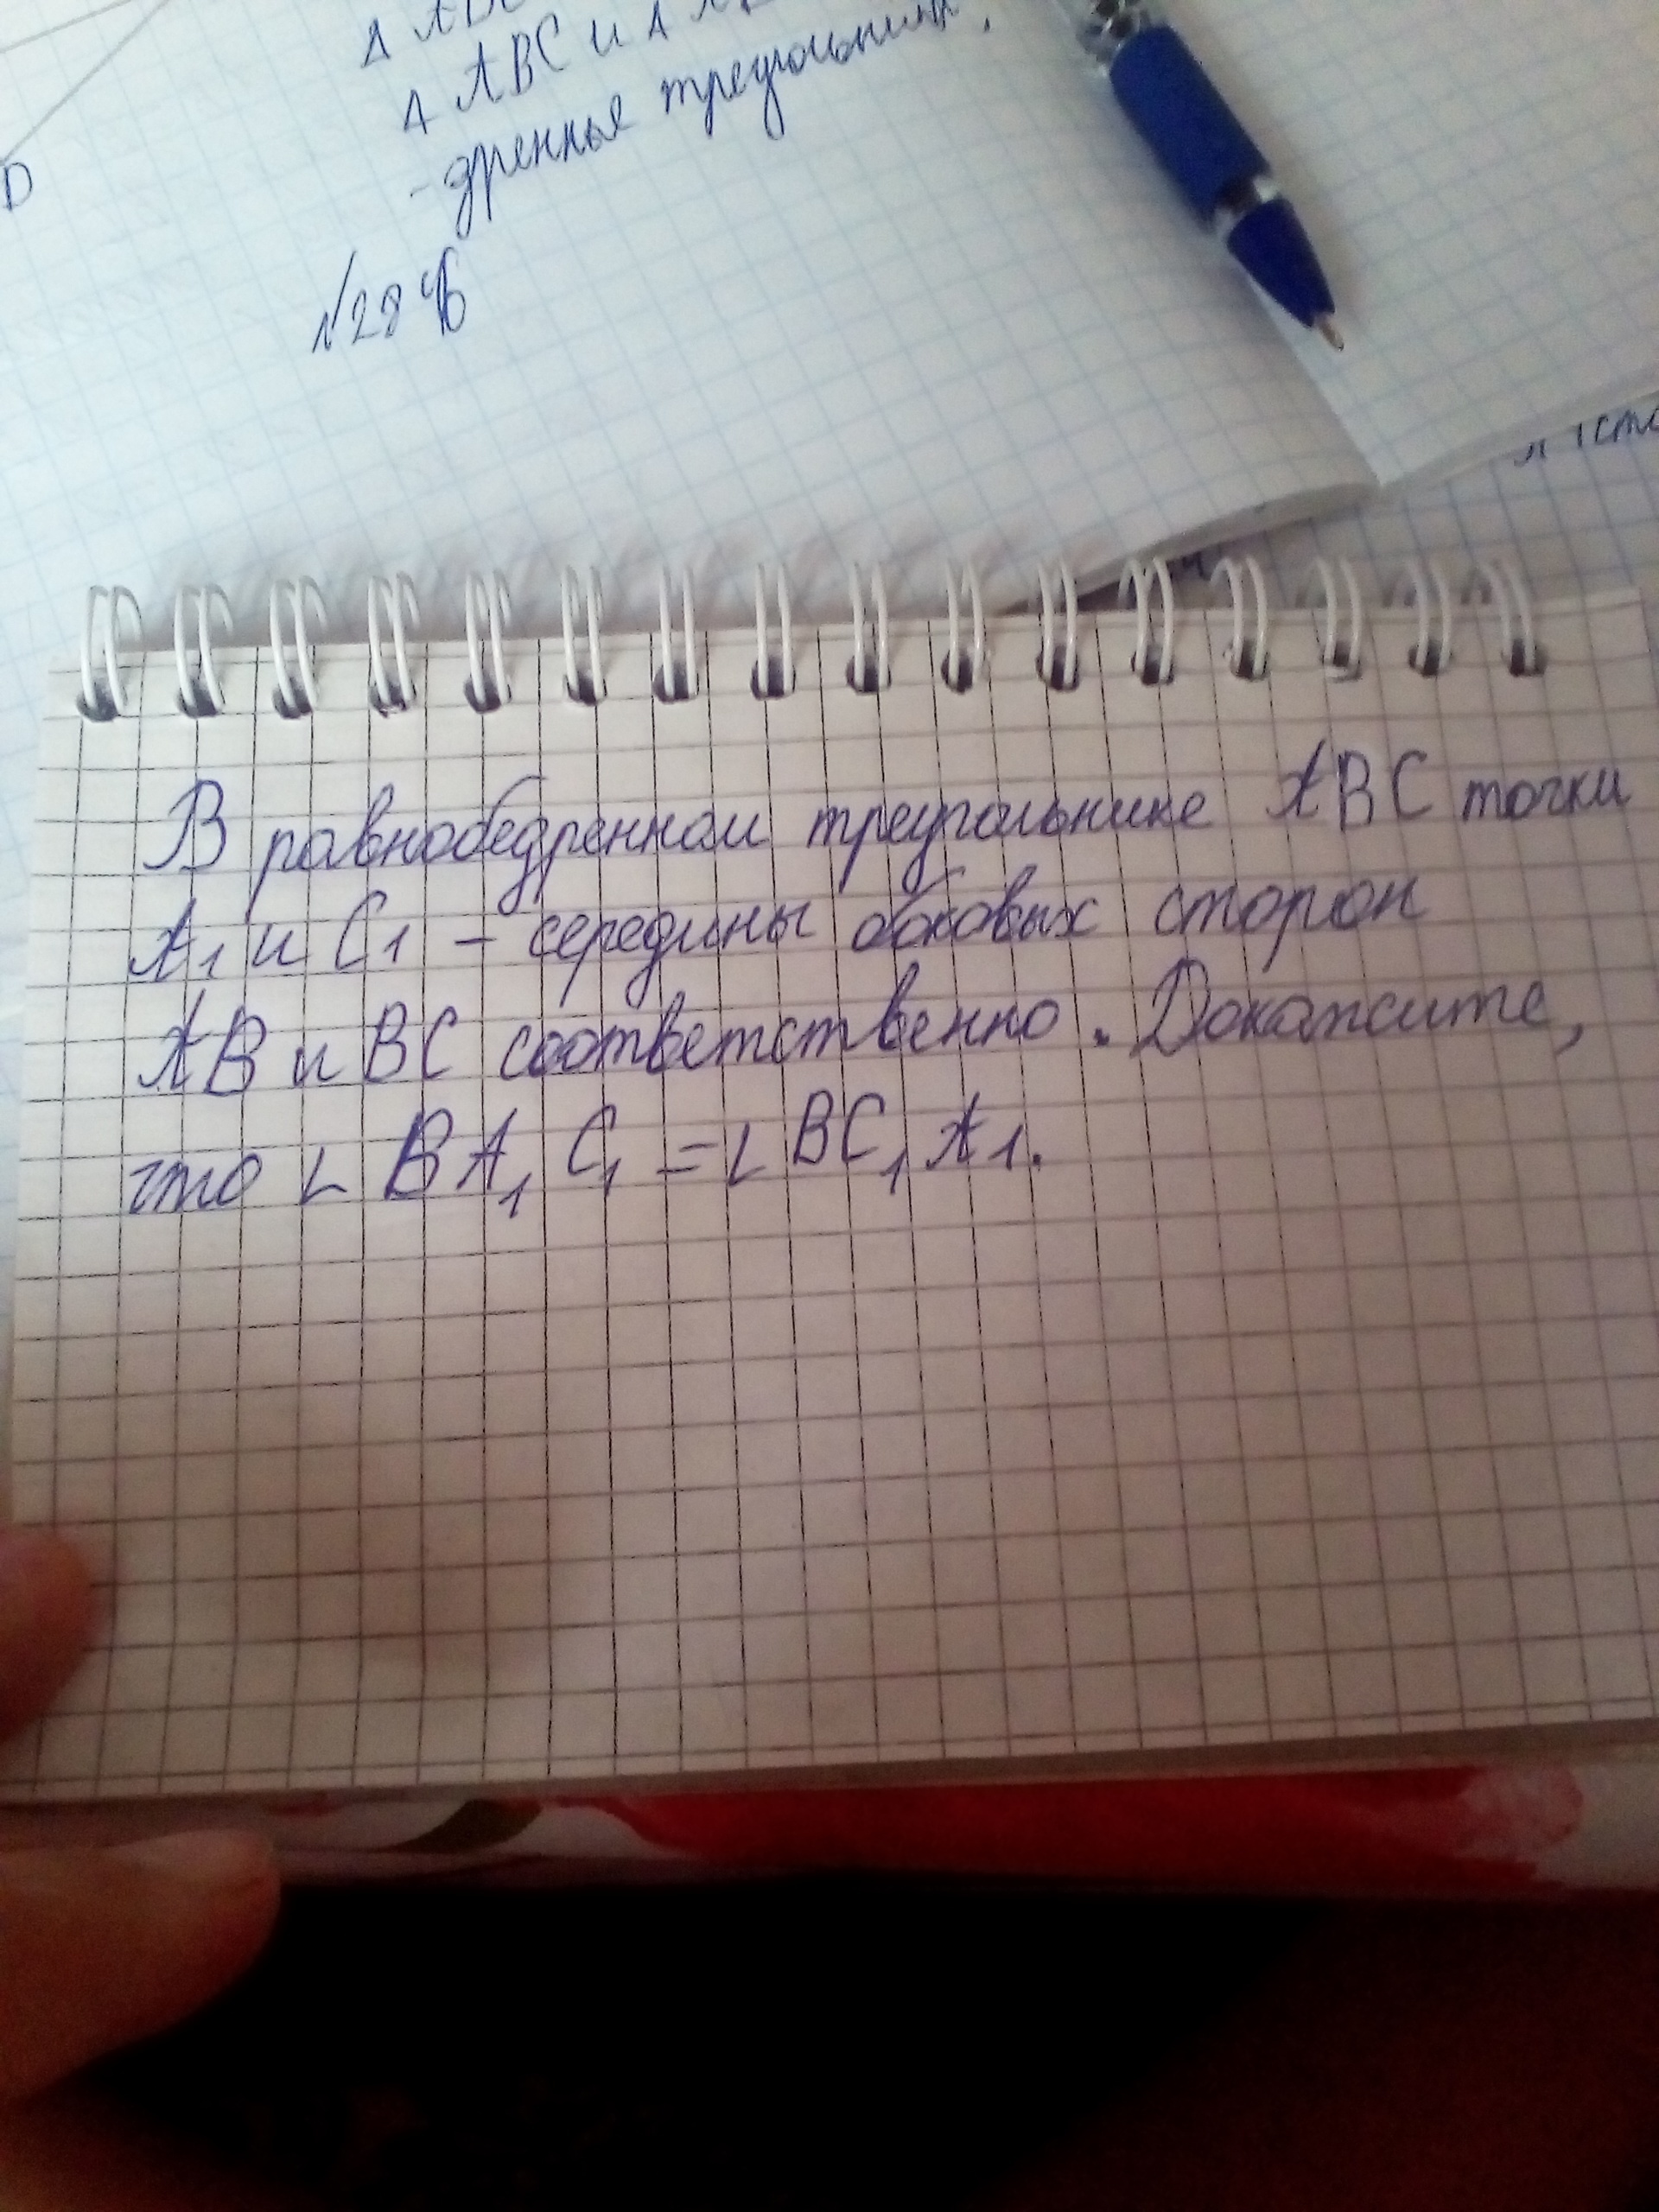 D
Δ ABC и Δ
-дренные треугольники.
В равнобедренном треугольнике ABC точки
A1 и C1 - середины боковых сторон
AB и BC соответственно. Докажите,
что ∟ BA1 C1 = ∟ BC1 A1.